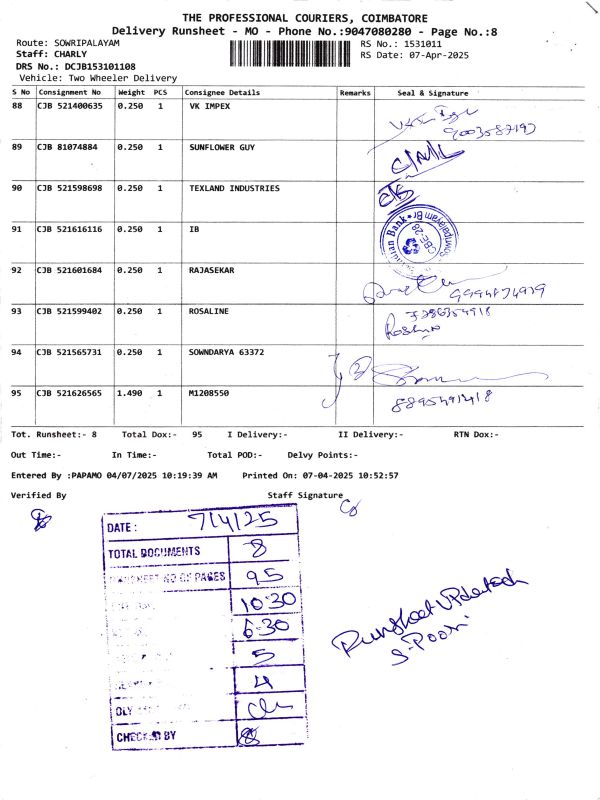 THE PROFESSIONAL COURIERS, COIMBATORE
Delivery Runsheet - MO - Phone No.:9047080280 - Page No.:8
Route: SOWRIPALAYAM
Staff: CHARLY
DRS No.: DCJB153101108
Vehicle: Two Wheeler Delivery
RS No.: 1531011
RS Date: 07-Apr-2025
S No Consignment No Weight PCS Consignee Details Remarks Seal & Signature
88 CJB 521400635 0.250 1 VK IMPEX
9003587197
89 CJB 81074884 0.250 1 SUNFLOWER GUY
90 CJB 521598698 0.250 1 TEXLAND INDUSTRIES
91 CJB 521616116 0.250 1 IB
Indian Bank Sowripalayam Br
CBE-28
92 CJB 521601684 0.250 1 RAJASEKAR
93 CJB 521599402 0.250 1 ROSALINE
7286354918
94 CJB 521565731 0.250 1 SOWNDARYA 63372
95 CJB 521626565 1.490 1 M1208550
8895491418
Tot. Runsheet:- 8 Total Dox:- 95 I Delivery:- II Delivery:- RTN Dox:-
Out Time:- In Time:- Total POD:- Delvy Points:-
Entered By :PAPAMO 04/07/2025 10:19:39 AM Printed On: 07-04-2025 10:52:57
Verified By Staff Signature
DATE : 7/4/25
TOTAL DOCUMENTS 8
RUNSHEET NO OF PAGES 95
10:30
6:30
5
4
CHECKED BY
Runsheet Updated
S. Poori